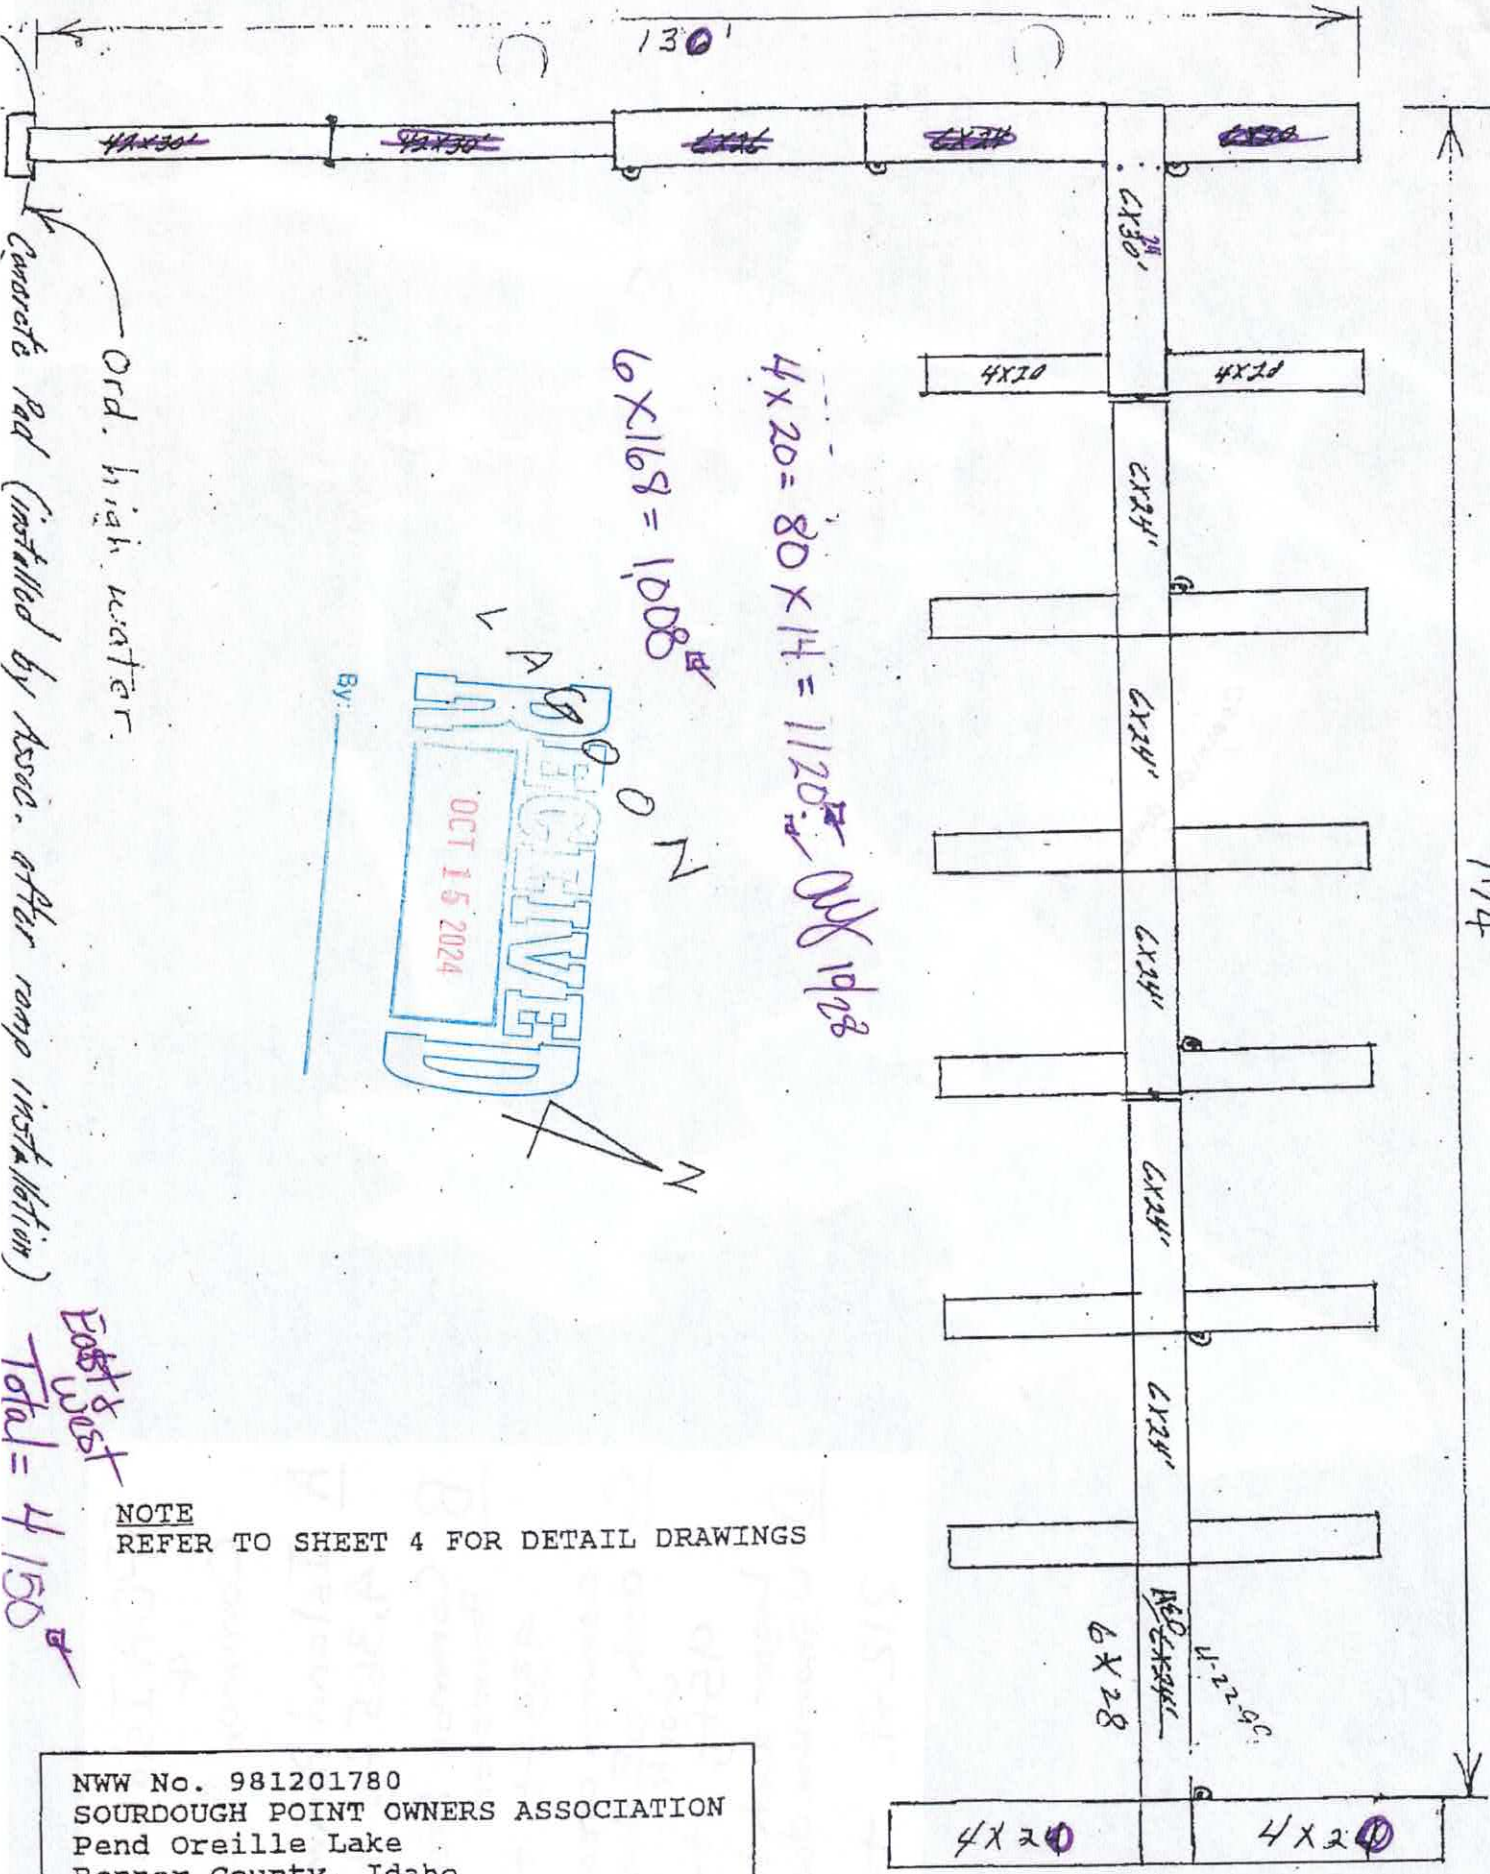 130'
174
6X30'
24
4X20
4X20
6X24'
6X24'
6X24'
6X24'
6X24'
6X28
11-22-96
4X20
4X20
4x20=80x14=1120
10/28
6x168=1,008
LAGOON
RECEIVED
OCT 15 2024
By:
N
Ord. high water.
Concrete Pad (installed by Assc. after ramp installation)
East & West
Total= 4150
NOTE
REFER TO SHEET 4 FOR DETAIL DRAWINGS
NWW No. 981201780
SOURDOUGH POINT OWNERS ASSOCIATION
Pend Oreille Lake
Bonner County, Idaho